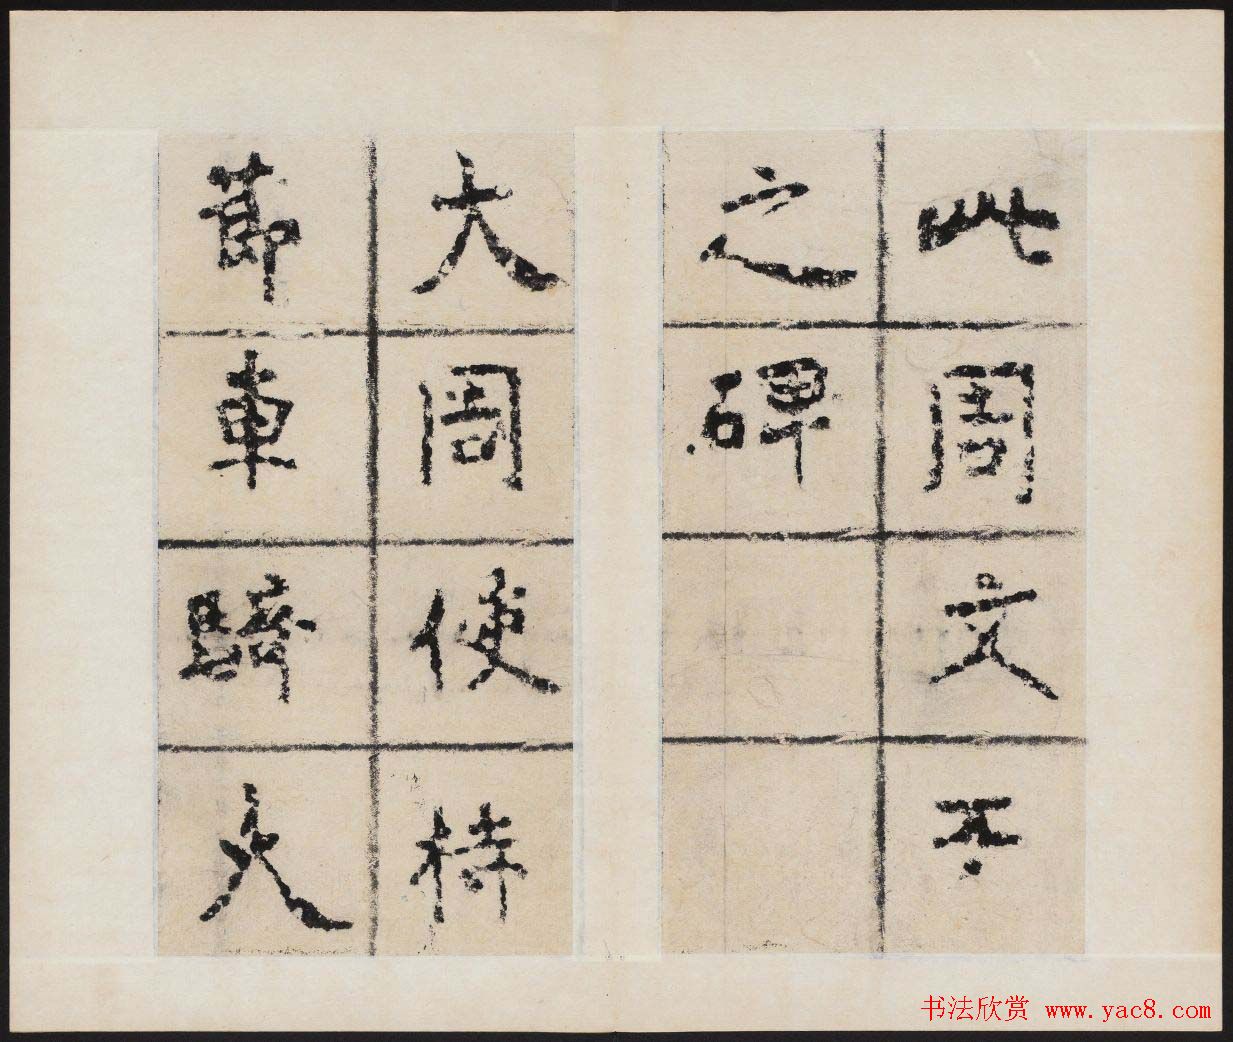 此周文王
之碑
大周使持
節車騎大
书法欣赏 www.yac8.com